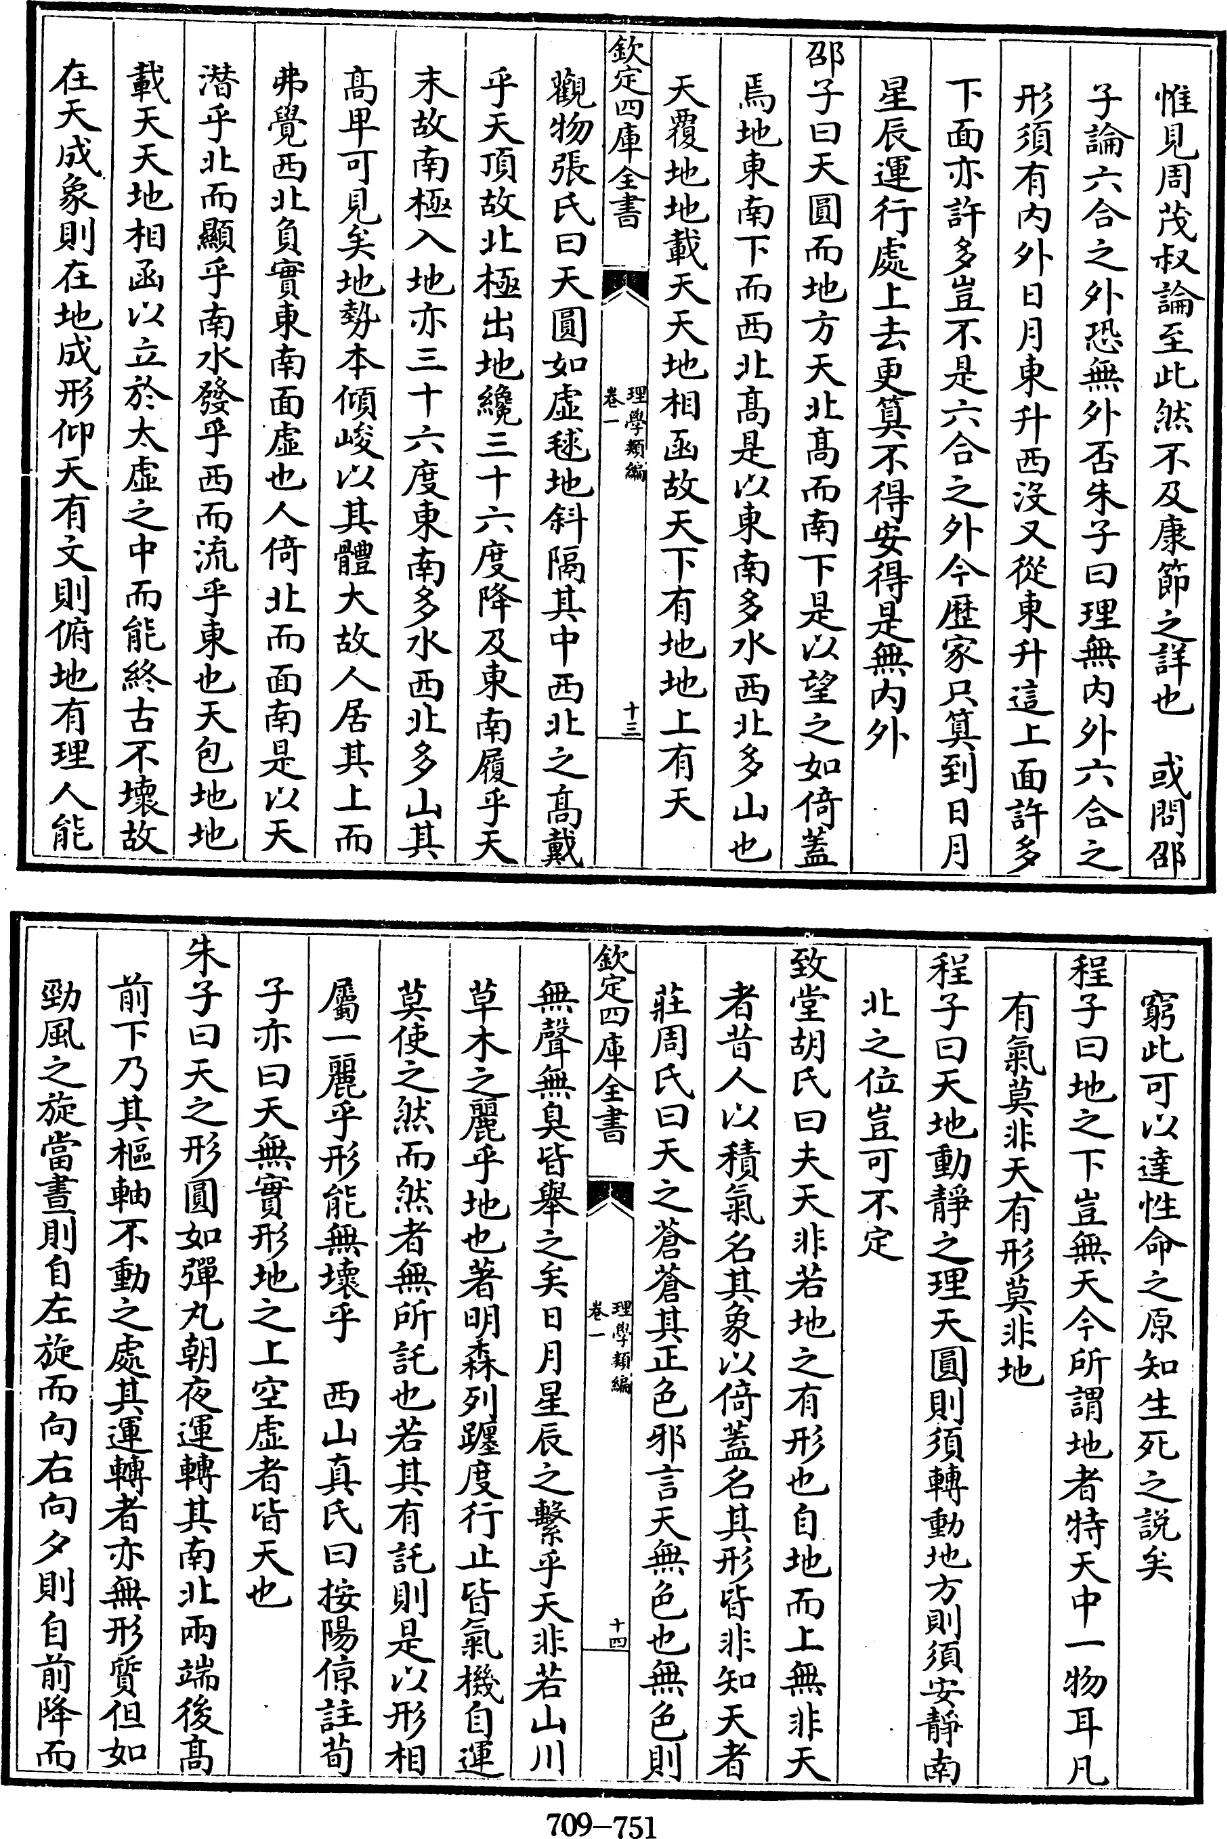 惟見周茂叔論至此然不及康節之詳也　或問邵
子論六合之外恐無外否朱子曰理無内外六合之
形須有内外日月東升西沒又從東升這上面許多
下面亦許多豈不是六合之外今歷家只算到日月
星辰運行處上去更算不得安得是無内外
邵子曰天圓而地方天北髙而南下是以望之如倚蓋
焉地東南下而西北髙是以東南多水西北多山也
天覆地地載天天地相函故天下有地地上有天
欽定四庫全書
理學類編
卷一
十三
觀物張氏曰天圓如虛毬地斜隔其中西北之髙戴
乎天頂故北極出地纔三十六度降及東南履乎天
末故南極入地亦三十六度東南多水西北多山其
髙卑可見矣地勢本傾峻以其體大故人居其上而
弗覺西北負實東南面虛也人倚北而面南是以天
潜乎北而顯乎南水發乎西而流乎東也天包地地
載天天地相函以立於太虛之中而能終古不壞故
在天成象則在地成形仰天有文則俯地有理人能
窮此可以達性命之原知生死之説矣
程子曰地之下豈無天今所謂地者特天中一物耳凡
有氣莫非天有形莫非地
程子曰天地動靜之理天圓則須轉動地方則須安靜南
北之位豈可不定
致堂胡氏曰夫天非若地之有形也自地而上無非天
者昔人以積氣名其象以倚蓋名其形皆非知天者
莊周氏曰天之蒼蒼其正色邪言天無色也無色則
欽定四庫全書
理學類編
卷一
十四
無聲無臭皆舉之矣日月星辰之繫乎天非若山川
草木之麗乎地也著明森列躔度行止皆氣機自運
莫使之然而然者無所託也若其有託則是以形相
屬一麗乎形能無壞乎　西山真氏曰按陽倞註荀
子亦曰天無實形地之上空虛者皆天也
朱子曰天之形圓如彈丸朝夜運轉其南北兩端後髙
前下乃其樞軸不動之處其運轉者亦無形質但如
勁風之旋當晝則自左旋而向右向夕則自前降而
709-751